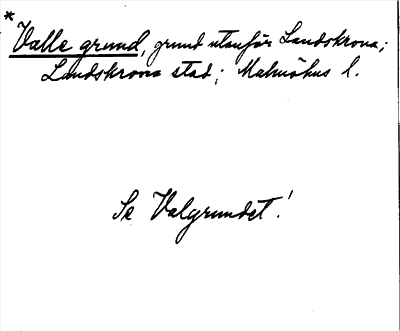 * Valle grund, grund utanför Landskrona;
Landskrona stad; Malmöhus l.
Se Valgrundet!